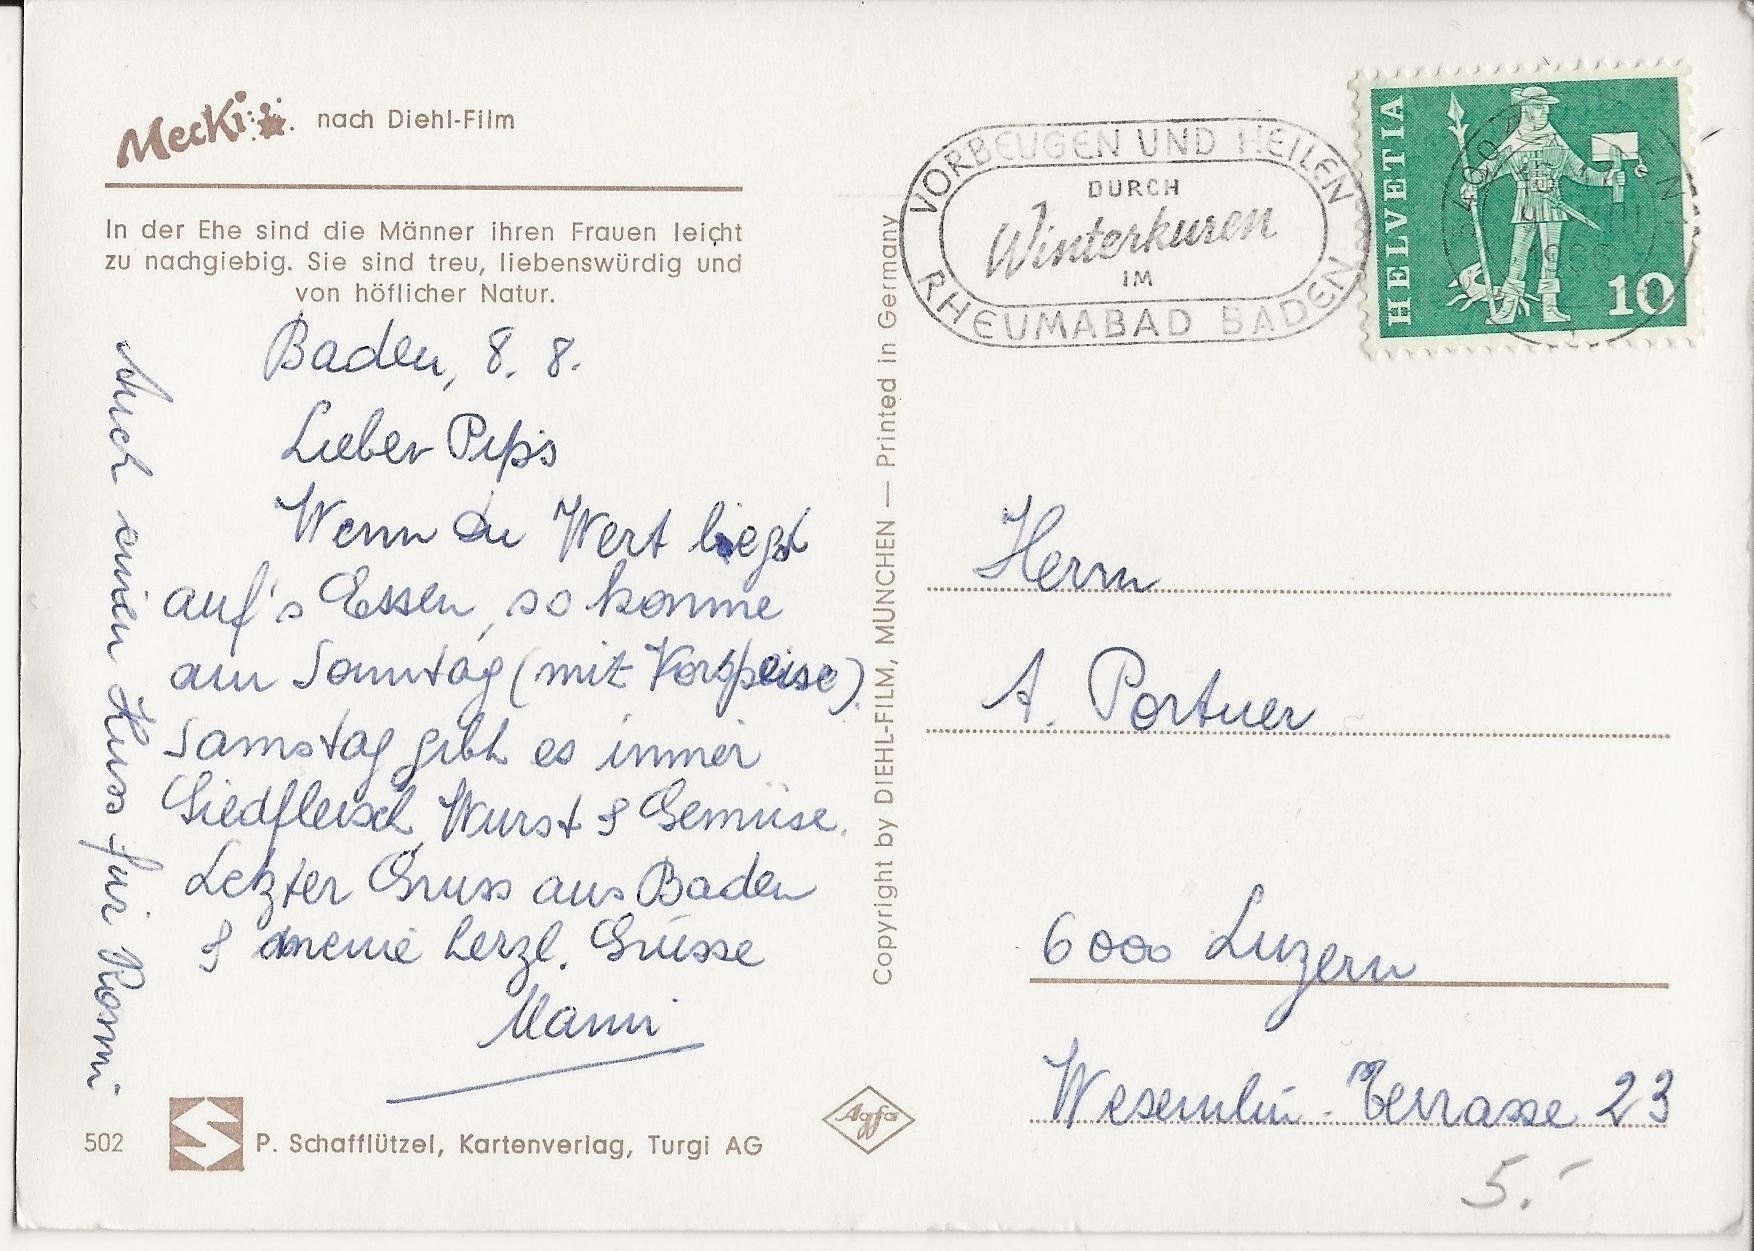 Mecki nach Diehl-Film
In der Ehe sind die Männer ihren Frauen leicht
zu nachgiebig. Sie sind treu, liebenswürdig und
von höflicher Natur.
Baden, 8. 8.
Lieber Pips
Wenn du Wert legst
auf's Essen, so komme
am Sonntag (mit Vorspeise).
Samstag gibt es immer
Siedfleisch, Wurst & Gemüse.
Letzter Gruss aus Baden
& meine herzl. Grüsse
Mami
Auch einen Kuss für Rosmi
502
P. Schafflützel, Kartenverlag, Turgi AG
Agfa
Copyright by DIEHL-FILM, MÜNCHEN — Printed in Germany
VORBEUGEN UND HEILEN
DURCH
Winterkuren
IM
RHEUMABAD BADEN
HELVETIA
10
Herrn
A. Portner
6000 Luzern
Wesemlin-Terrasse 23
5.-